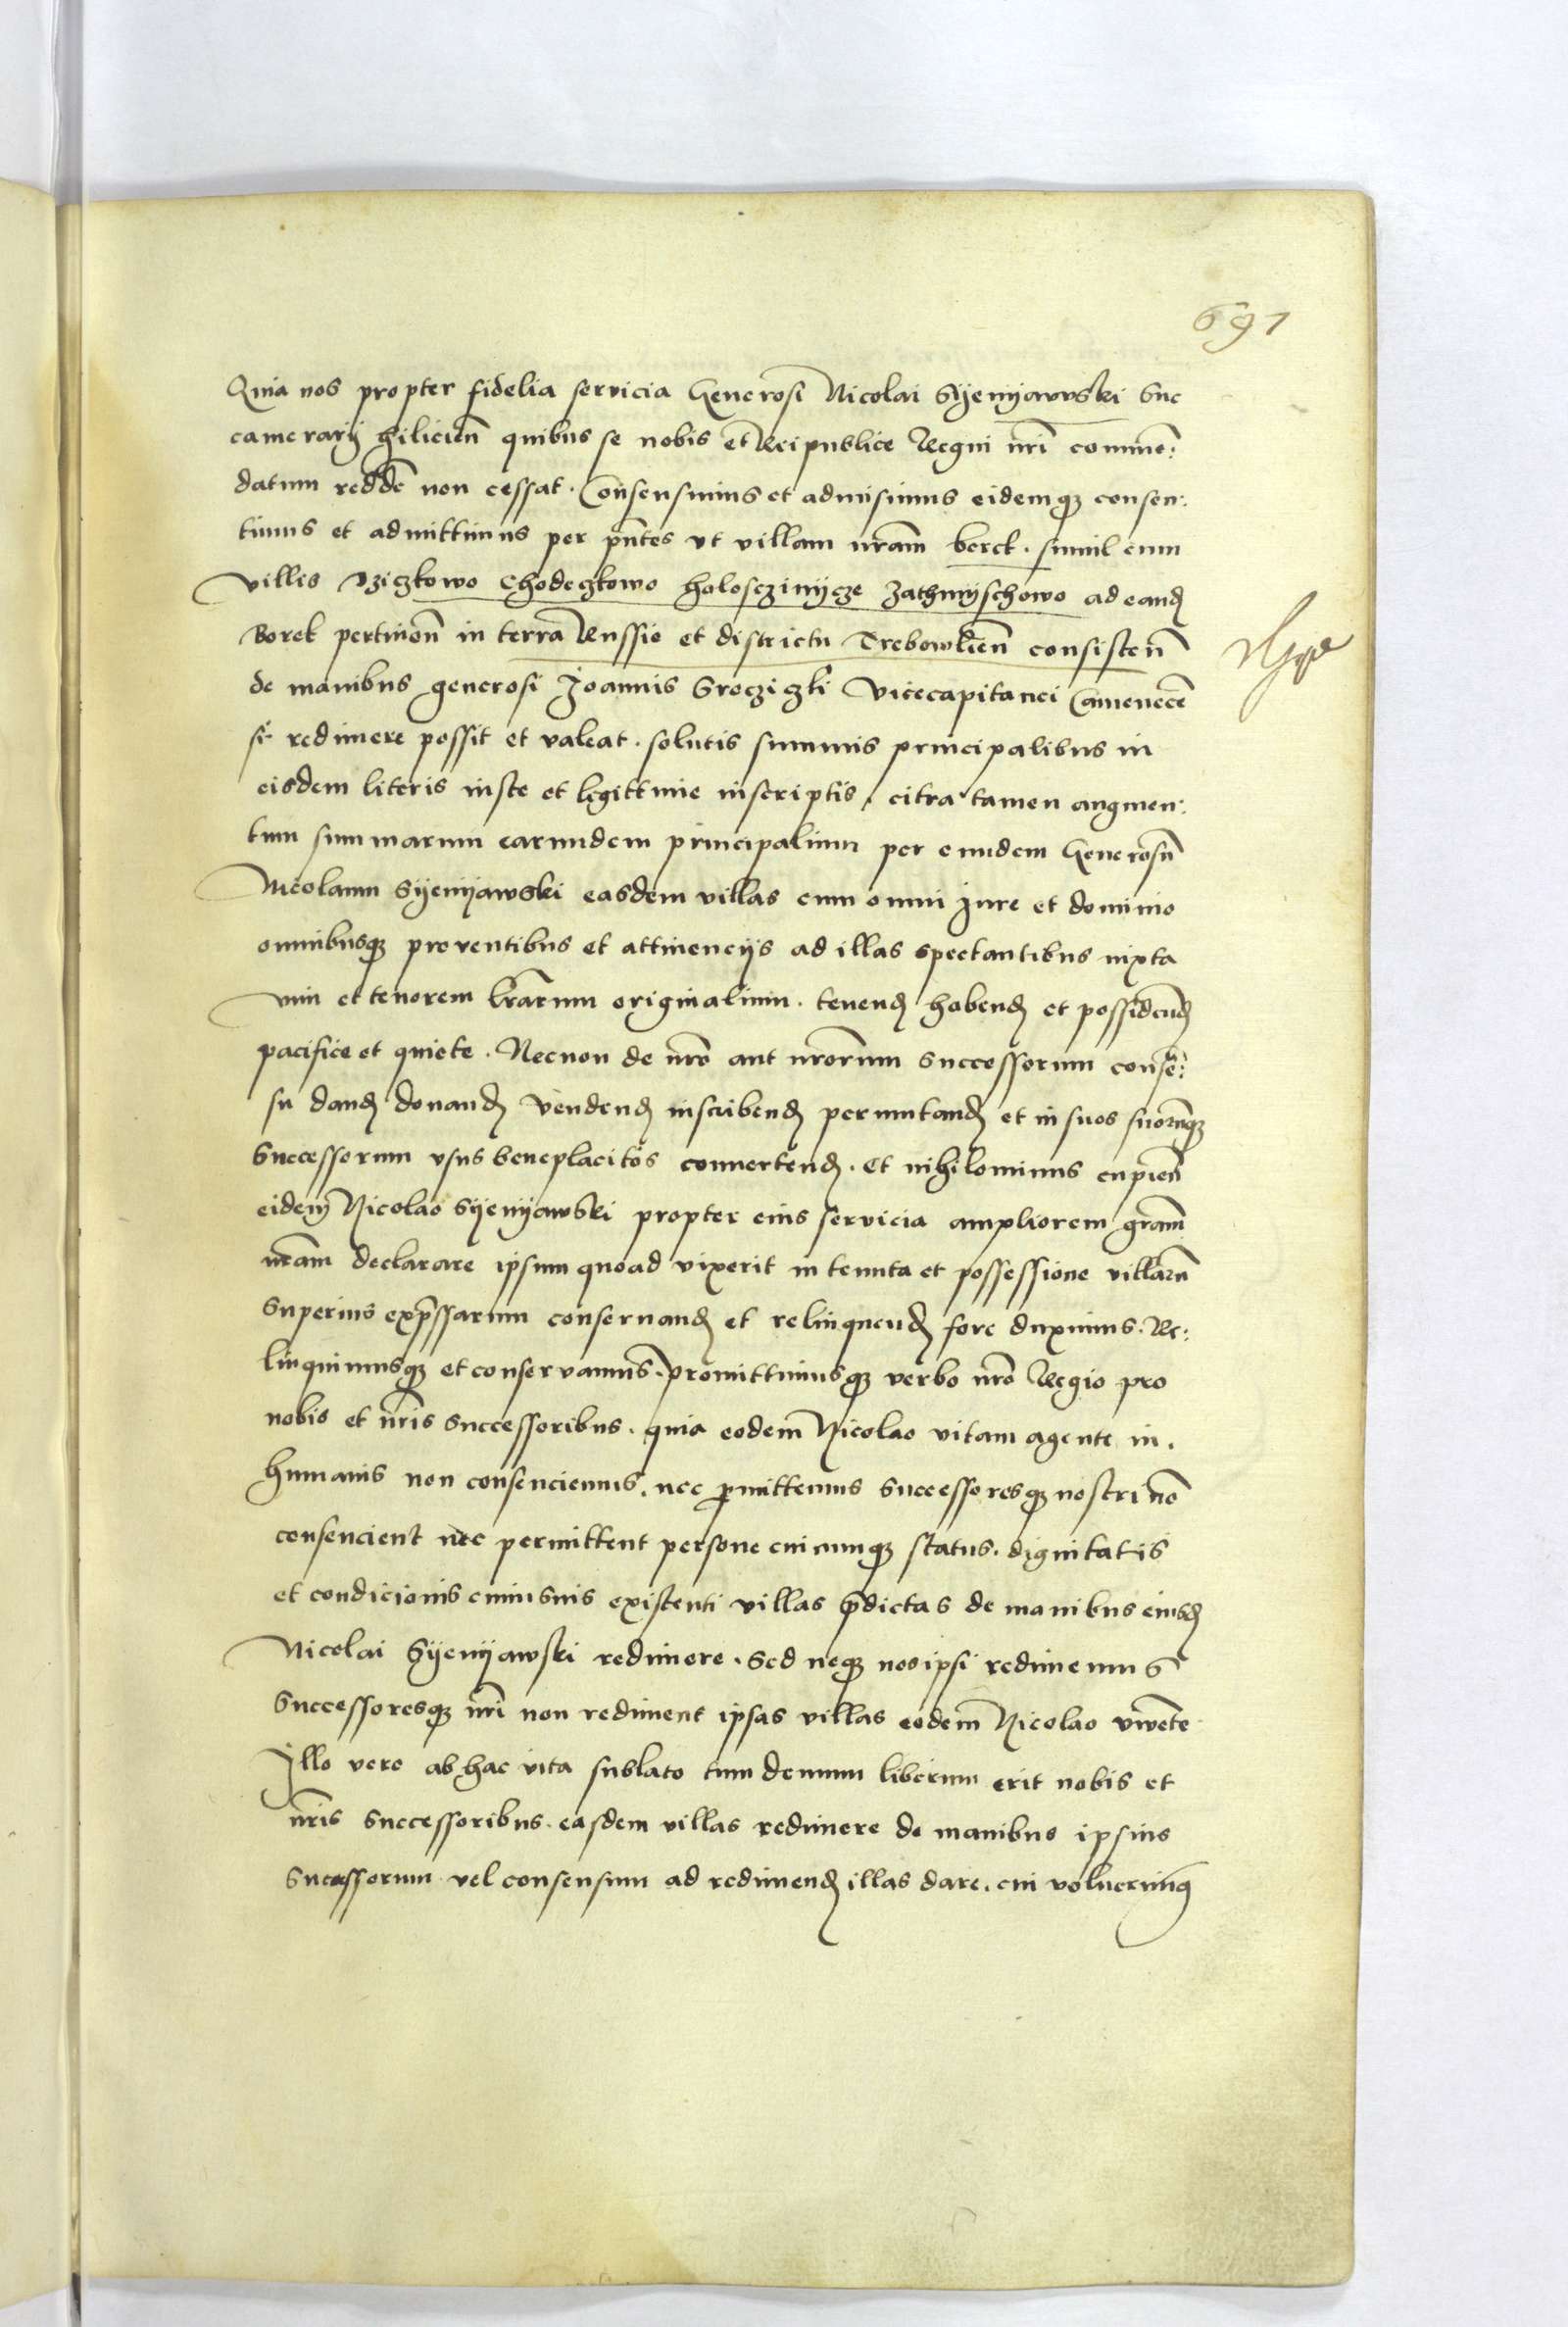 691
Quia nos propter fidelia servicia Generosi Nicolai Syenyawski Suc
camerarij Haliciēn quibus se nobis et Reipublice Regni nrī commē:
datum reddē non cessat. Consensimus et admisimus eidemqʒ consen:
timus et admittimus per pn̄tes vt villam nrām borek. simul cum
villis Iziczkowo Chodeczkowo holosczinycze Zathmyschowo ad eandꝫ
Borek pertineñ in terra Russie et districtu Trebowlieñ consisteñ
de manibus generosi Joannis Srocziczki Vicecapitanei Camenecēn
sꝭ redimere possit et valeat. solutis summis principalibus in
eisdem literis iuste et legittime inscriptis, citra tamen augmen:
tum summarum earundem principalium per eundem Generosū
Nicolaum Syenyawski easdem villas cum omni Jure et dominio
omnibusqʒ proventibus et attinencijs ad illas spectantibus iuxta
vim et tenorem lr̄arum originalium. tenendꝫ habendꝫ et possidendꝫ
pacifice et quiete. Necnon de nr̄o aut nrorum successorum consē:
su dandꝫ donandꝫ vendendꝫ inscribendꝫ permutandꝫ et in suos suorūqʒ
Successorum vsus beneplacitos convertendꝫ. Et nihilominus cupieñ
eidem Nicolao Syenyawski propter eius servicia ampliorem grām
nrām declarare ipsum quoad vixerit in tenuta et possessione villarū
superius exp̄ssarum conservandꝫ et relinquendꝫ fore duximus. Re:
linquimusqʒ et conservamus. promittimusqʒ verbo nrō Regio pro
nobis et nrīs Successoribus. quia eodem Nicolao vitam agente in.
humanis non consenciemus. nec p̱mittemus Successoresqʒ nostri nō
consencient nec permittent persone cuicumqʒ status. dignitatis
et condicionis cuiusuis existenti villas p̄dictas de manibus eiusdꝫ
Nicolai Syenyawski redimere. Sed neqʒ nos ipsi redimemus
Successoresqʒ nrī non redimient ipsas villas eodem Nicolao vivēte
Illo vero ab hac vita sublato tum demum liberum erit nobis et
nrīs Successoribus. easdem villas redimere de manibus ipsius
Successorum vel consensum ad redimendꝫ illas dare. cui voluerimꝰ